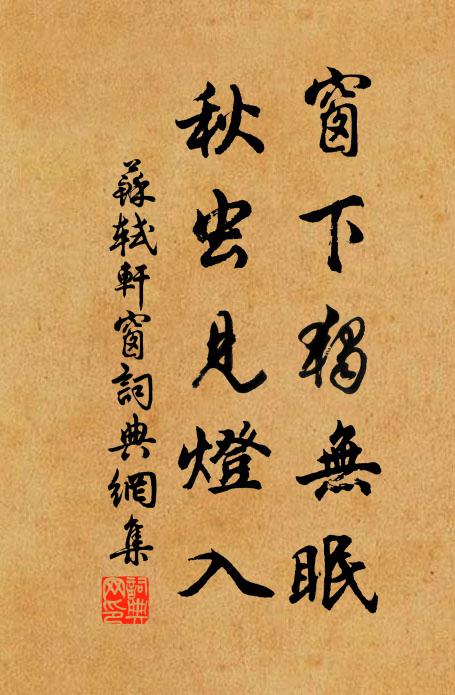 窗下獨無眠
秋虫見燈入
蘇軾軒窗詞典網集
詞典網印